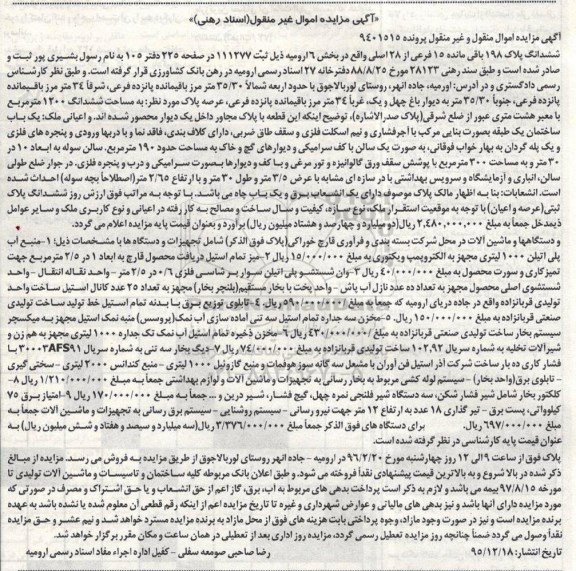 «آگهی مزایده اموال غیر منقول(اسناد رهنی)»
آگهی مزایده اموال منقول و غیر منقول پرونده ۹۴۰۱۵۱۵
ششدانگ پلاک ۱۹۸ باقی مانده ۱۵ فرعی از ۲۸ اصلی واقع در بخش ۱۶ ارومیه ذیل ثبت ۱۱۱۲۷۷ در صفحه ۲۲۵ دفتر ۱۰۵ به نام رسول بشیری پور ثبت و
صادر شده است و طبق سند رهنی ۲۸۱۲۳ مورخ ۸۸/۸/۲۵ دفترخانه ۲۷ اسناد رسمی ارومیه در رهن بانک کشاورزی قرار گرفته است. و طبق نظر کارشناس
رسمی دادگستری و در آدرس: ارومیه، جاده انهر، روستای لوربالاجوق با حدود اربعه شمالاً ۳۵/۳۰ متر مرز باقیمانده پانزده فرعی، شرقاً ۳۴ متر مرز باقیمانده
پانزده فرعی، جنوباً ۳۵/۳۰ متر به دیوار باغ چهل و یک، غرباً ۳۴ متر مرز باقیمانده پانزده فرعی، عرصه پلاک مورد نظر: به مساحت ششدانگ ۱۲۰۰ مترمربع
با معبر هشت متری عبور از ضلع شرقی(پلاک صدرالاشاره)، توضیح اینکه این قطعه با پلاک مجاور داخل یک دیوار محصور شده اند. و اعیانی ملک: یک باب
ساختمان یک طبقه بصورت بنایی مرکب با آجرفشاری و نیم اسکلت فلزی و سقف طاق ضربی، دارای کلاف بندی، فاقد نما و با دربها ورودی و پنجره های فلزی
و یک پله گردان به بهار خواب فوقانی، به صورت یک سالن با کف سرامیکی و دیوارهای گچ و خاک به مساحت حدود ۱۹۰ مترمربع. سالن سوله به ابعاد ۱۰ در
۳۰ متر و به مساحت ۳۰۰ مترمربع با پوشش سقف ورق گالوانیزه و تور مرغی و با کف و دیوارها بـصورت سـرامیکی و درب و پنجره فلزی. در جوار ضلع طولی
سالن، انباری و آزمایشگاه و سرویس بهداشتی با در سازه ای مشابه با عرض ۳/۵ متر و طول ۳۰ متر و با ارتفاع ۲/۶۵ متر(اصطلاحاً بچه سوله) احـداث شـده
است. انشعابات: بنا به اظهار مالک پلاک موصوف دارای یک انـشعاب بـرق و یـک بـاب چاه می باشـد. بـا توجـه بـه مراتب فوق ارزش روز شـشدانگ پـلاک
ثبتی(عرصه و اعیان) با توجه به موقعیت استقـرار ملک، نوع سازه، کیفیت و سال ساخت و مصالح به کار رفته در اعیانی و نوع کاربـری ملک و سایر عوامل
ذیمدخل جمعاً به مبلغ ۲,۴۸۰,۰۰۰,۰۰۰ ریال(دو میلیارد و چهارصد و هشتاد میلیون ریال) برآورد و بعنوان قیمت پایه مزایده اعلام می گردد.
و دستگاهها و ماشین آلات در محل شرکت بسته بندی و فرآوری قارچ خوراکی(پلاک فوق الذکر) شامل تجهیزات و دستگاه ها با مشخصات ذیل: ۱-منبع آب
پلی اتیلن ۱۰۰۰ لیتری مجهز به الکتروپمپ و یکتوری به مبلغ ۱۵/۰۰۰/۰۰۰ ریال ۲-میز تمام استیل دریافت محصول قارچ به ابعاد ۱ در ۲/۵ مترمربع جهت
تمیزکاری و سورت محصول به مبلغ ۴۰/۰۰۰/۰۰۰ ریال ۳-وان شستشو پلی اتیلن سـوار بر شاسـی فلزی ۰/۶ در ۲/۵ متر – واحـد نقاله انتقال – واحد
شستشوی اصلی محصول مجهز به تعداد ده عدد نازل آب پاش – واحد پخت با بخار مستقیم(بلنچر بخار) مجهز به تعداد ۲۵ عدد کانال استیل ساخت واحد
تولیدی قربانزاده واقع در جاده دریای ارومیه که جمعاً به مبلغ ۵۹۰/۰۰۰/۰۰۰ ریال. ۴-تابلوی توزیع برق با بدنه تمام استیل خط تولید ساخت تولیدی
صنعتی قربانزاده به مبلغ ۱۵۰/۰۰۰/۰۰۰ ریال. ۵-مخزن سه جداره تمام استیل سه تنی آماده سازی آب نمک(پروسس) منبه نمک استیل مجهز به میکسچر
سیستم بخار ساخت تولیدی صنعتی قربانزاده به مبلغ ۴۳۰/۰۰۰/۰۰۰ ریال ۶-مخزن ذخیره تمام استیل آب نمک تک جداره ۱۰۰۰ لیتری مجهز به هم زن و
شیرآلات تخلیه به شماره سریال ۱۰۲,۹۲ ساخت تولیدی قربانزاده به مبلغ ۷۴/۰۰۰/۰۰۰ ریال ۷-دیگ بخار سه تنی به شماره سریال ۳۰۰۰۳AFS۹۱ با
فشار کاری ده بار ساخت شرکت آذر استیل فن آوران با مشعل سه گانه سوز هوفمات و منبع گازوئیل ۱۰۰۰ لیتری – منبع کندانس ۲۰۰۰ لیتری – سختی گیری
– تابلوی برق(واحد بخار) – سیستم لوله کشی مربوط به بخار رسانی به تجهیزات و ماشین آلات و لوازم بهداشتی جمعاً به مبلغ ۱/۲۱۰/۰۰۰/۰۰۰ ریال ۸-
کلکتور بخار شامل شیر فشار شکن، سه دستگاه شیر فلنجی نمره چهل، گیج فشار، شیر درین و ... جمعاً به مبلغ ۱۷۰/۰۰۰/۰۰۰ ریال ۹-امتیاز برق ۷۵
کیلوواتی، پست برق – تیر گذاری ۱۸ عدد به ارتفاع ۱۲ متر جهت نیرو رسانی – سیستم روشنایی – سیستم برق رسانی به تجهیزات و ماشین آلات جمعاً به
مبلغ ۶۹۷/۰۰۰/۰۰۰ ریال. برای دستگاه های فوق الذکر جمعاً مبلغ ۳/۳۷۶/۰۰۰/۰۰۰ ریال(سه میلیارد و سیصد و هفتاد و شش میلیون ریال) به
عنوان قیمت پایه کارشناسی در نظر گرفته شده است.
پلاک فوق از ساعت ۹ الی ۱۲ روز چهارشنبه مورخ ۹۶/۲/۲۰ در ارومیه – جاده انهر روستای لوربالاجوق از طریق مزایده به فروش می رسد. مزایده از مبالغ
ذکر شده در بالا شروع و به بالاترین قیمت پیشنهادی نقداً فروخته می شود. و طبق اعلان بانک مربوطه کلیه ساختمان و تاسیسات و ماشین آلات تولیدی تا
مورخه ۹۷/۸/۱۵ بیمه می باشد و لازم به ذکر است پرداخت بدهی های مربوط به آب، برق، گاز اعم از حق انشعاب و یا حق اشتراک و مصرف در صورتی که
مورد مزایده دارای آنها باشد و نیز بدهی های مالیاتی و عوارض شهرداری و غیره تا تاریخ مزایده اعم از اینکه رقم قطعی آن معلوم شده یا نشده باشد به عهده
برنده مزایده است و نیز در صورت وجود مازاد، وجوه پرداختی بابت هزینه های فوق از محل مازاد به برنده مزایده مسترد خواهد شد و نیم عشر و حق مزایده
نقداً وصول می گردد ضمناً چنانچه روز مزایده تعطیل رسمی گردد، مزایده روز اداری بعد از تعطیلی در همان ساعت و مکان مقرر برگزار خواهد شد.
تاریخ انتشار: ۹۵/۱۲/۱۸ رضا صاحبی صومعه سفلی – کفیل اداره اجراء مفاد اسناد رسمی ارومیه